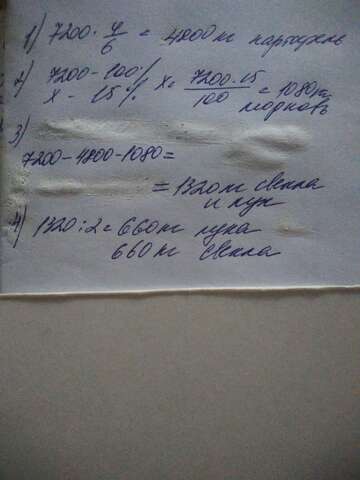 1) 7200 · 4/6 = 4800 кг картофель
2) 7200 - 100%
х - 15% х = 7200·15/100 = 1080 кг морковь
3)
7200 - 4800 - 1080 =
= 1320 кг свекла
и лук
4) 1320 : 2 = 660 кг лука
660 кг свекла